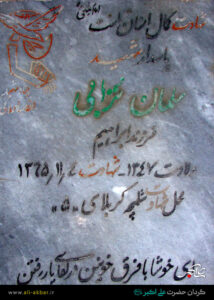 شهادت کمال انسان است
پاسدار شهید
سلمان
فرزند ابراهیم
ولادت ۱۳۴۷ - شهادت ۱۳۶۵،۱۱،۴
محل شهادت شلمچه کربلای «۵»
ای خوشا با فرق خونین در لقای یار رفتن
www.ali-akbar.ir
گردان حضرت علی اکبر